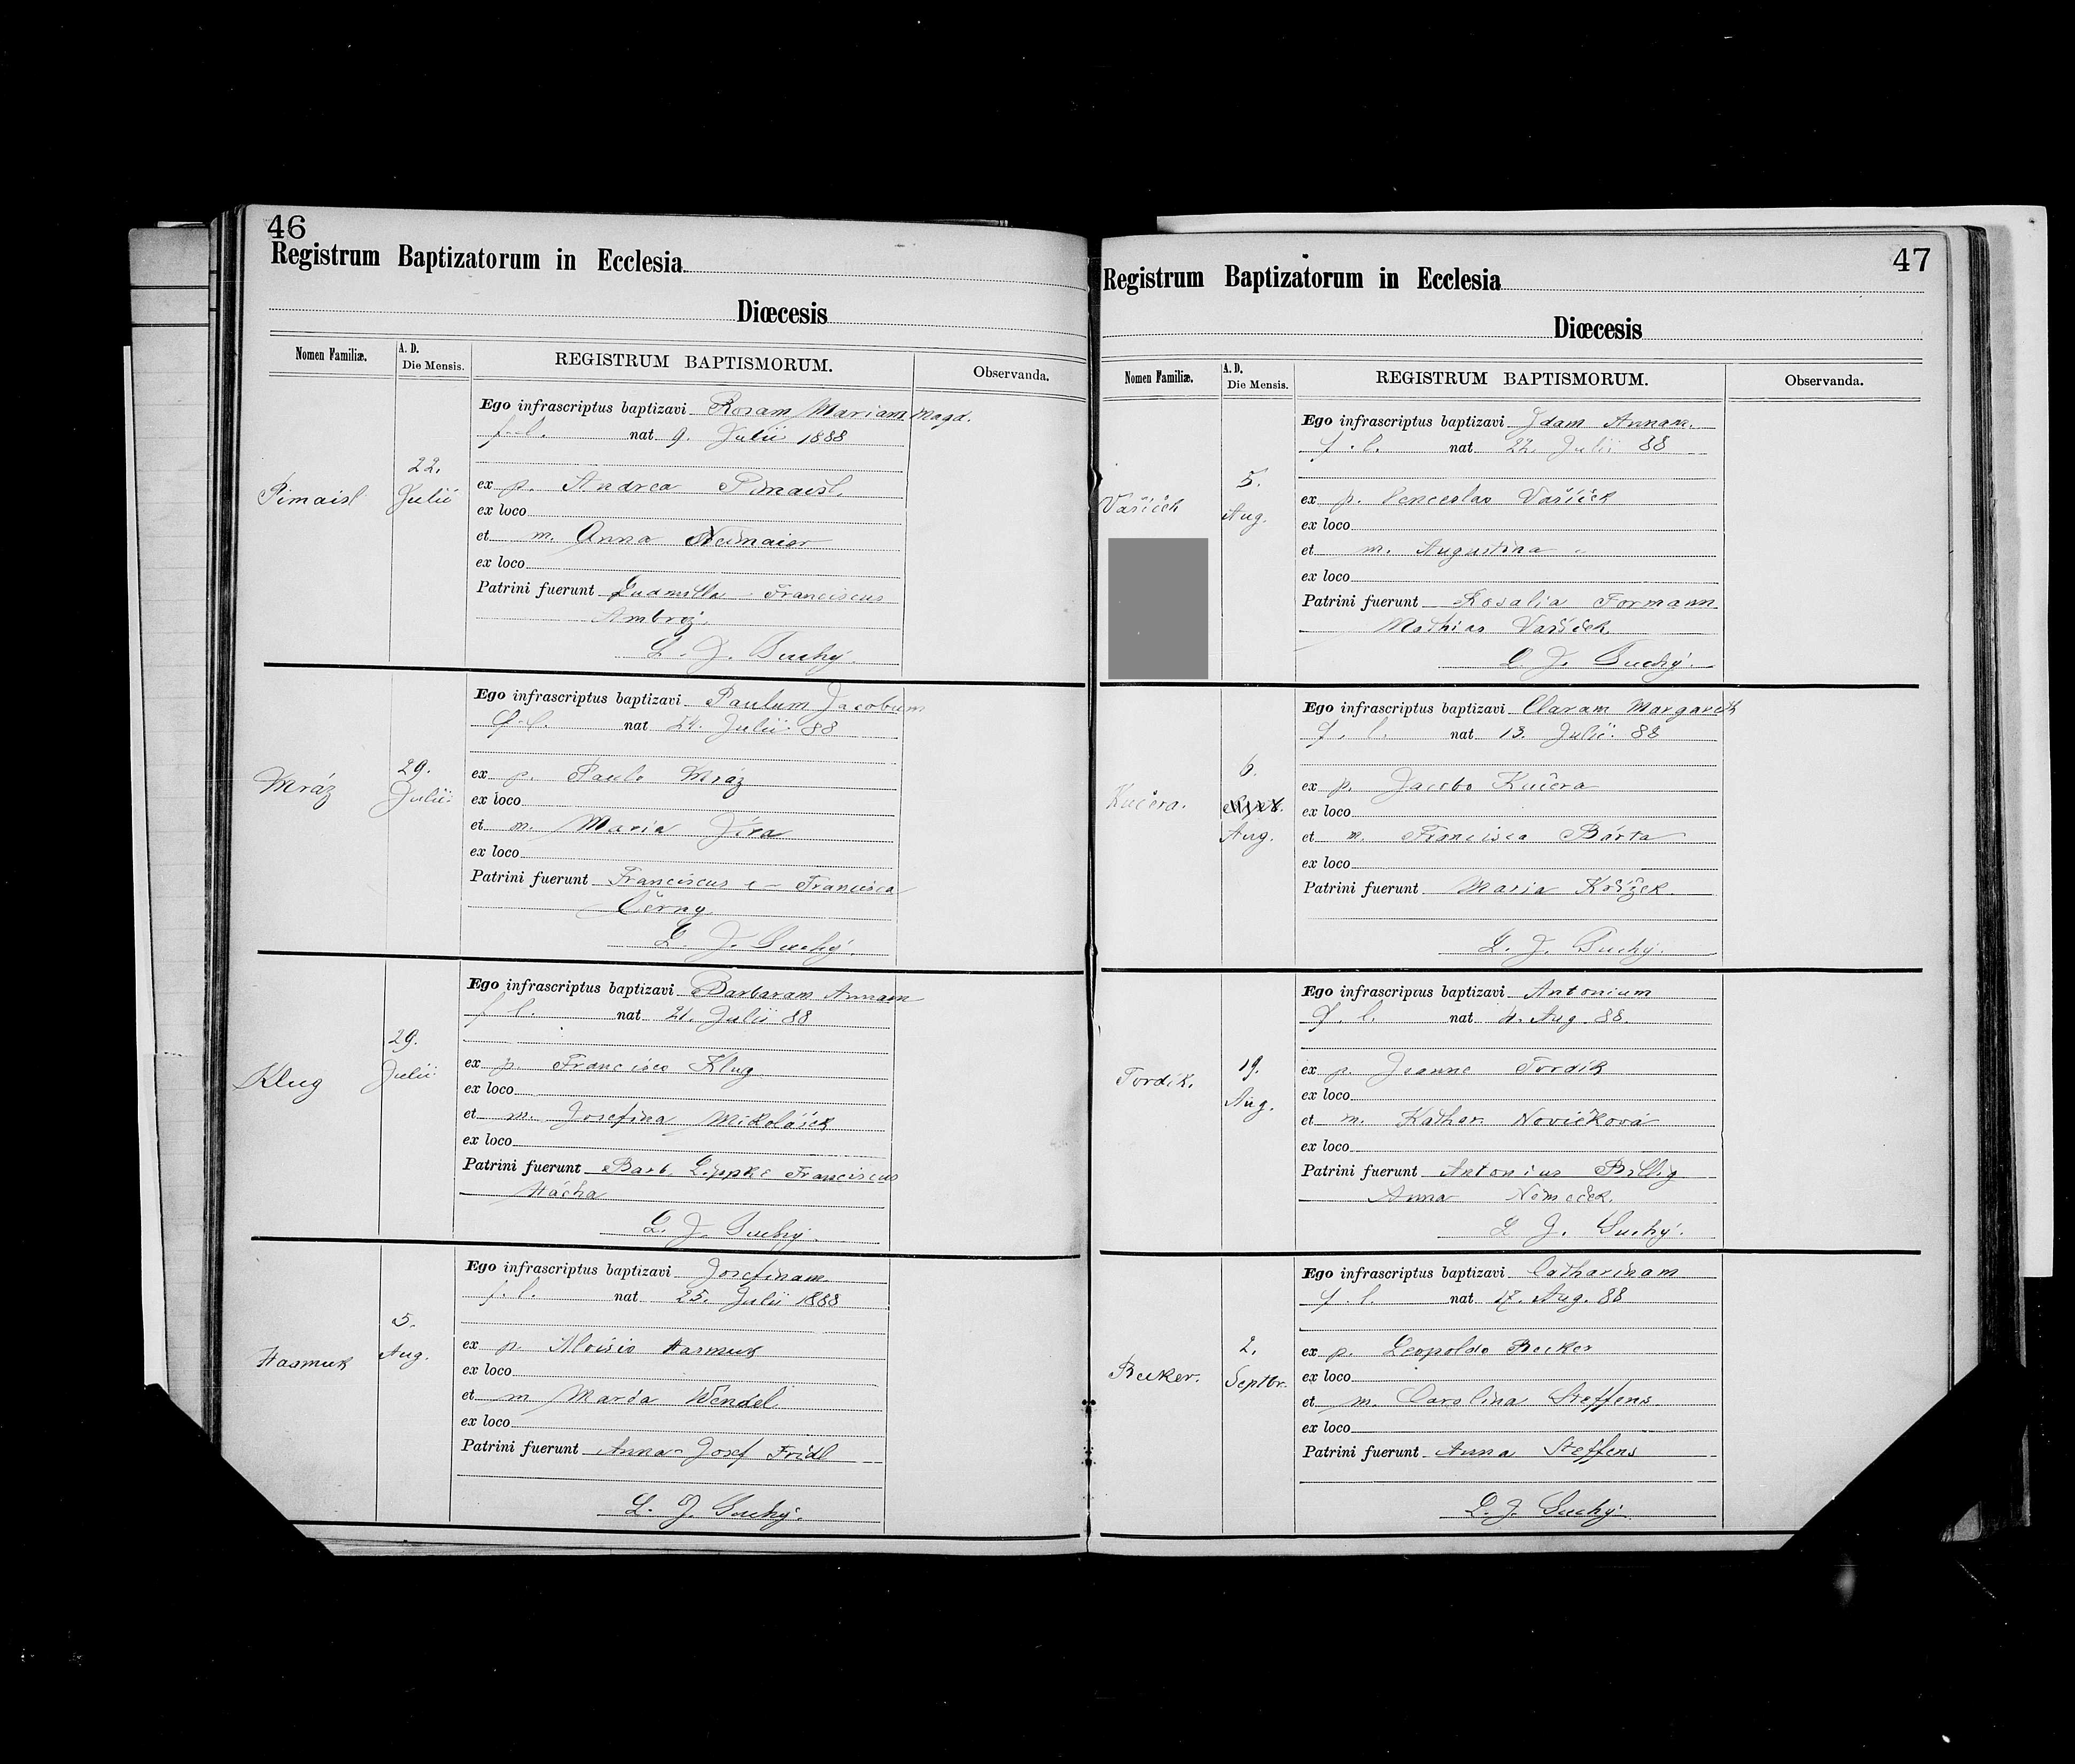 46
Registrum Baptizatorum in Ecclesia
Diœcesis
Nomen Familiæ.
A. D.
Die Mensis.
REGISTRUM BAPTISMORUM.
Observanda.
Pimaisl
22.
Julii
Ego infrascriptus baptizavi Rosam Mariam Magd.
f. l. nat 9. Julii 1888
ex p. Andrea Pimaisl
ex loco
et m. Anna Neimaier
ex loco
Patrini fuerunt Ludmilla - Franciscus
Ambrož
L. J. Suchý.
Mráz
29.
Julii
Ego infrascriptus baptizavi Paulum Jacobum
f. l. nat 24. Julii 88
ex p. Paulo Mráz
ex loco
et m. Maria Jíra
ex loco
Patrini fuerunt Franciscus e - Francisca
Černy
L. J. Suchý.
Klug
29.
Julii
Ego infrascriptus baptizavi Barbaram Annam
f. l. nat 21. Julii 88
ex p. Francisco Klug
ex loco
et m. Josefina Mikolášek
ex loco
Patrini fuerunt Barb. Lippke Franciscus
Hácha
L. J. Suchý.
Hasmuk
5.
Aug.
Ego infrascriptus baptizavi Josefinam
f. l. nat 25. Julii 1888
ex p. Aloisio Hasmuk
ex loco
et m Maria Wendel
ex loco
Patrini fuerunt Anna - Josef Fridl
L. J. Suchý.
47
Registrum Baptizatorum in Ecclesia
Diœcesis
Nomen Familiæ.
A. D.
Die Mensis.
REGISTRUM BAPTISMORUM.
Observanda.
Vašíček
5.
Aug.
Ego infrascriptus baptizavi Idam Annam.
f. l. nat 22. Julii 88
ex p. Venceslao Vašíček
ex loco
et m. Augustina "
ex loco
Patrini fuerunt Rosalia Formann
Mathias Vašíček
L. J. Suchý.
Kučera.
6.
Aug.
Ego infrascriptus baptizavi Claram Margareth
f. l. nat 13. Julii. 88
ex p. Jacobo Kučera
ex loco
et m. Francisca Bárta
ex loco
Patrini fuerunt Maria Křížek.
L. J. Suchý.
Tordík.
19.
Aug.
Ego infrascriptus baptizavi Antonium
f. l. nat 4. Aug. 88.
ex p Joanne Tordík
ex loco
et m. Kathar. Novičková
ex loco
Patrini fuerunt Antonius Billig
Anna Němeček.
L J. Suchý.
Becker.
2.
Septbr.
Ego infrascriptus baptizavi Catharinam
f. l. nat 17. Aug. 88
ex p. Leopoldo Becker
ex loco
et m. Carolina Steffens.
ex loco
Patrini fuerunt Anna Steffens
L. J. Suchý